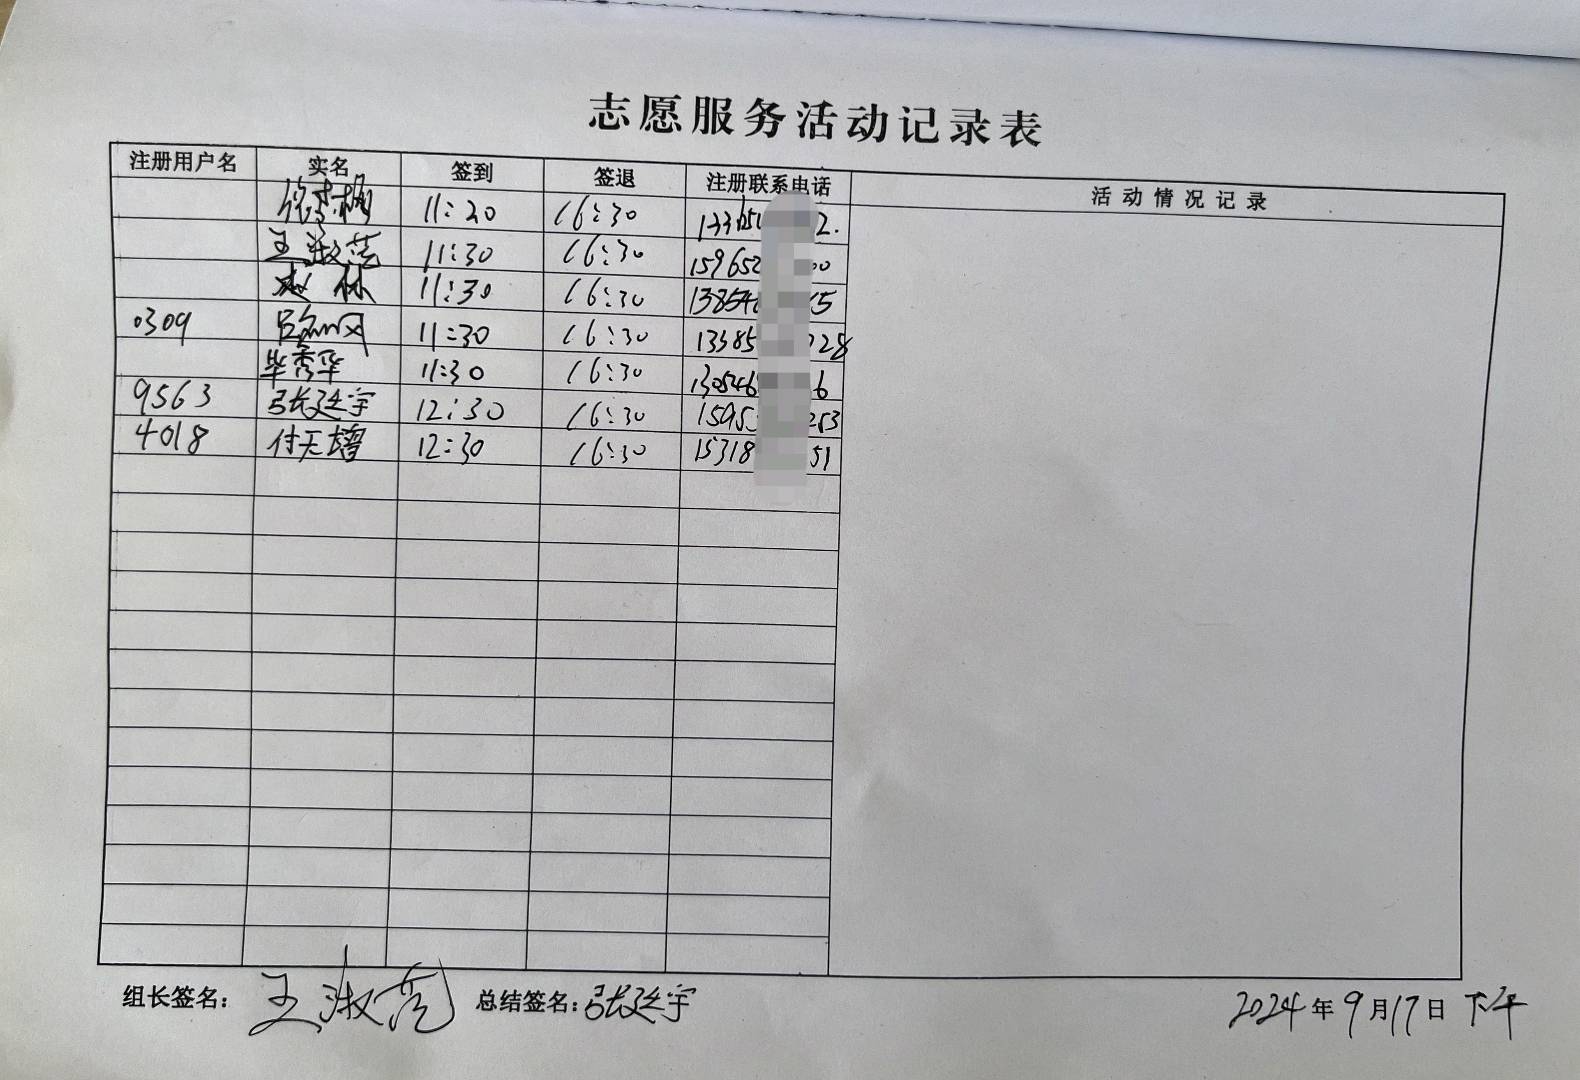 志愿服务活动记录表
注册用户名 实名 签到 签退 注册联系电话 活动情况记录
11:20 16:30
王淑范 11:30 16:30 159652 00
赵林 11:30 16:30 13854 5
0309 吕 11:30 16:30 13385 28
毕秀华 11:30 16:30 130546 6
9563 张廷宇 12:30 16:30 1595 253
4018 付天增 12:30 16:30 15318 51
组长签名: 王淑范 总结签名: 张廷宇 2024年9月17日 下午